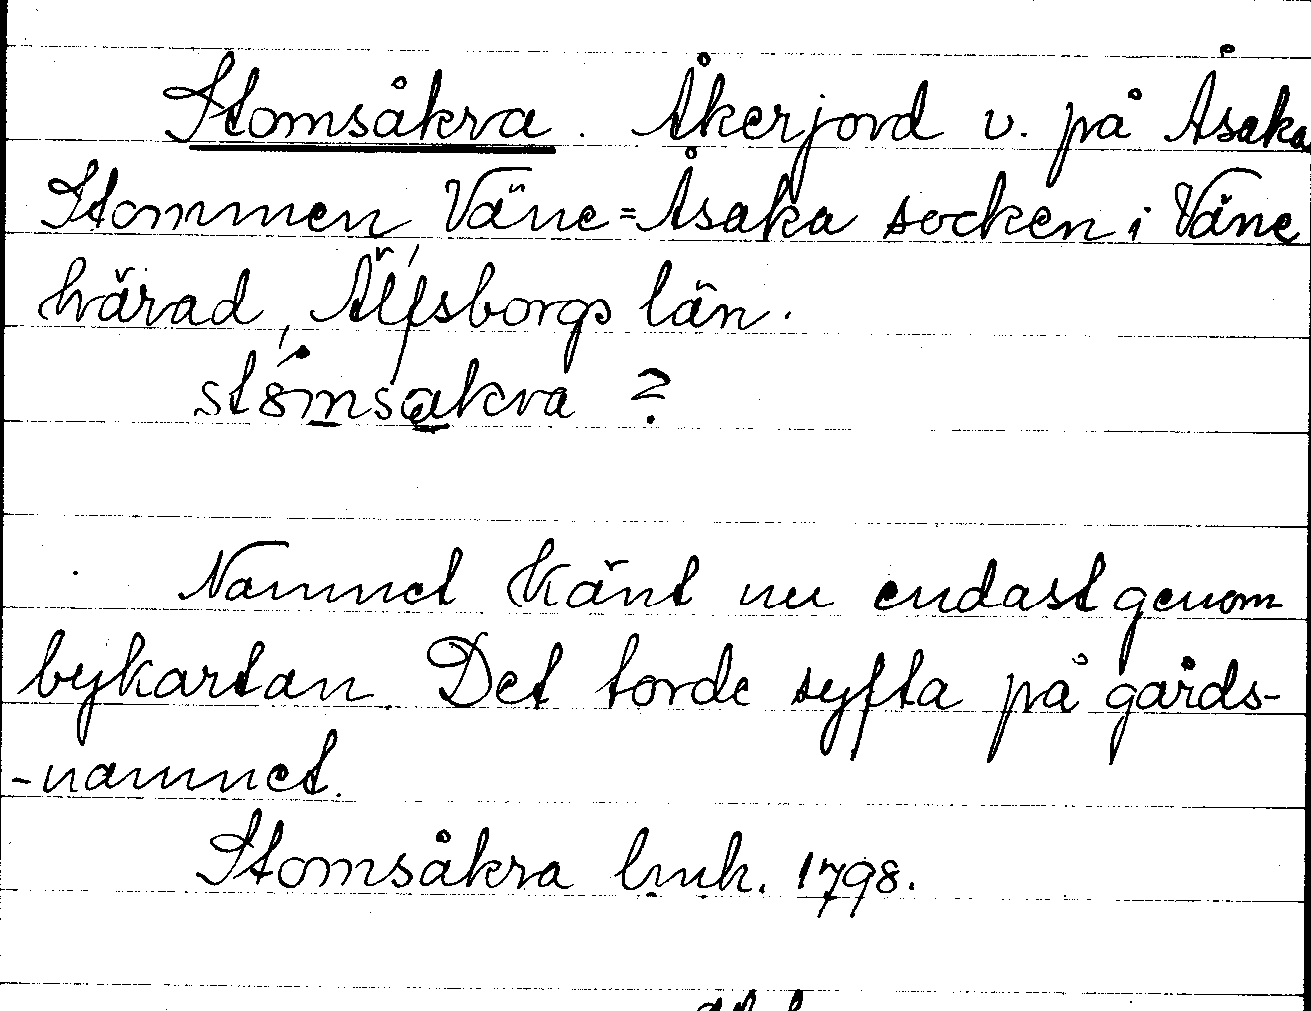 Stomsåkra. Åkerjord v. på Åsaka
Stommen, Väne=Åsaka socken i Väne
härad, Älfsborgs län.
stómsakra ?
Namnet känt nu endast genom
bykartan. Det torde syfta på gårds-
-namnet.
Stomsåkra lmk. 1798.